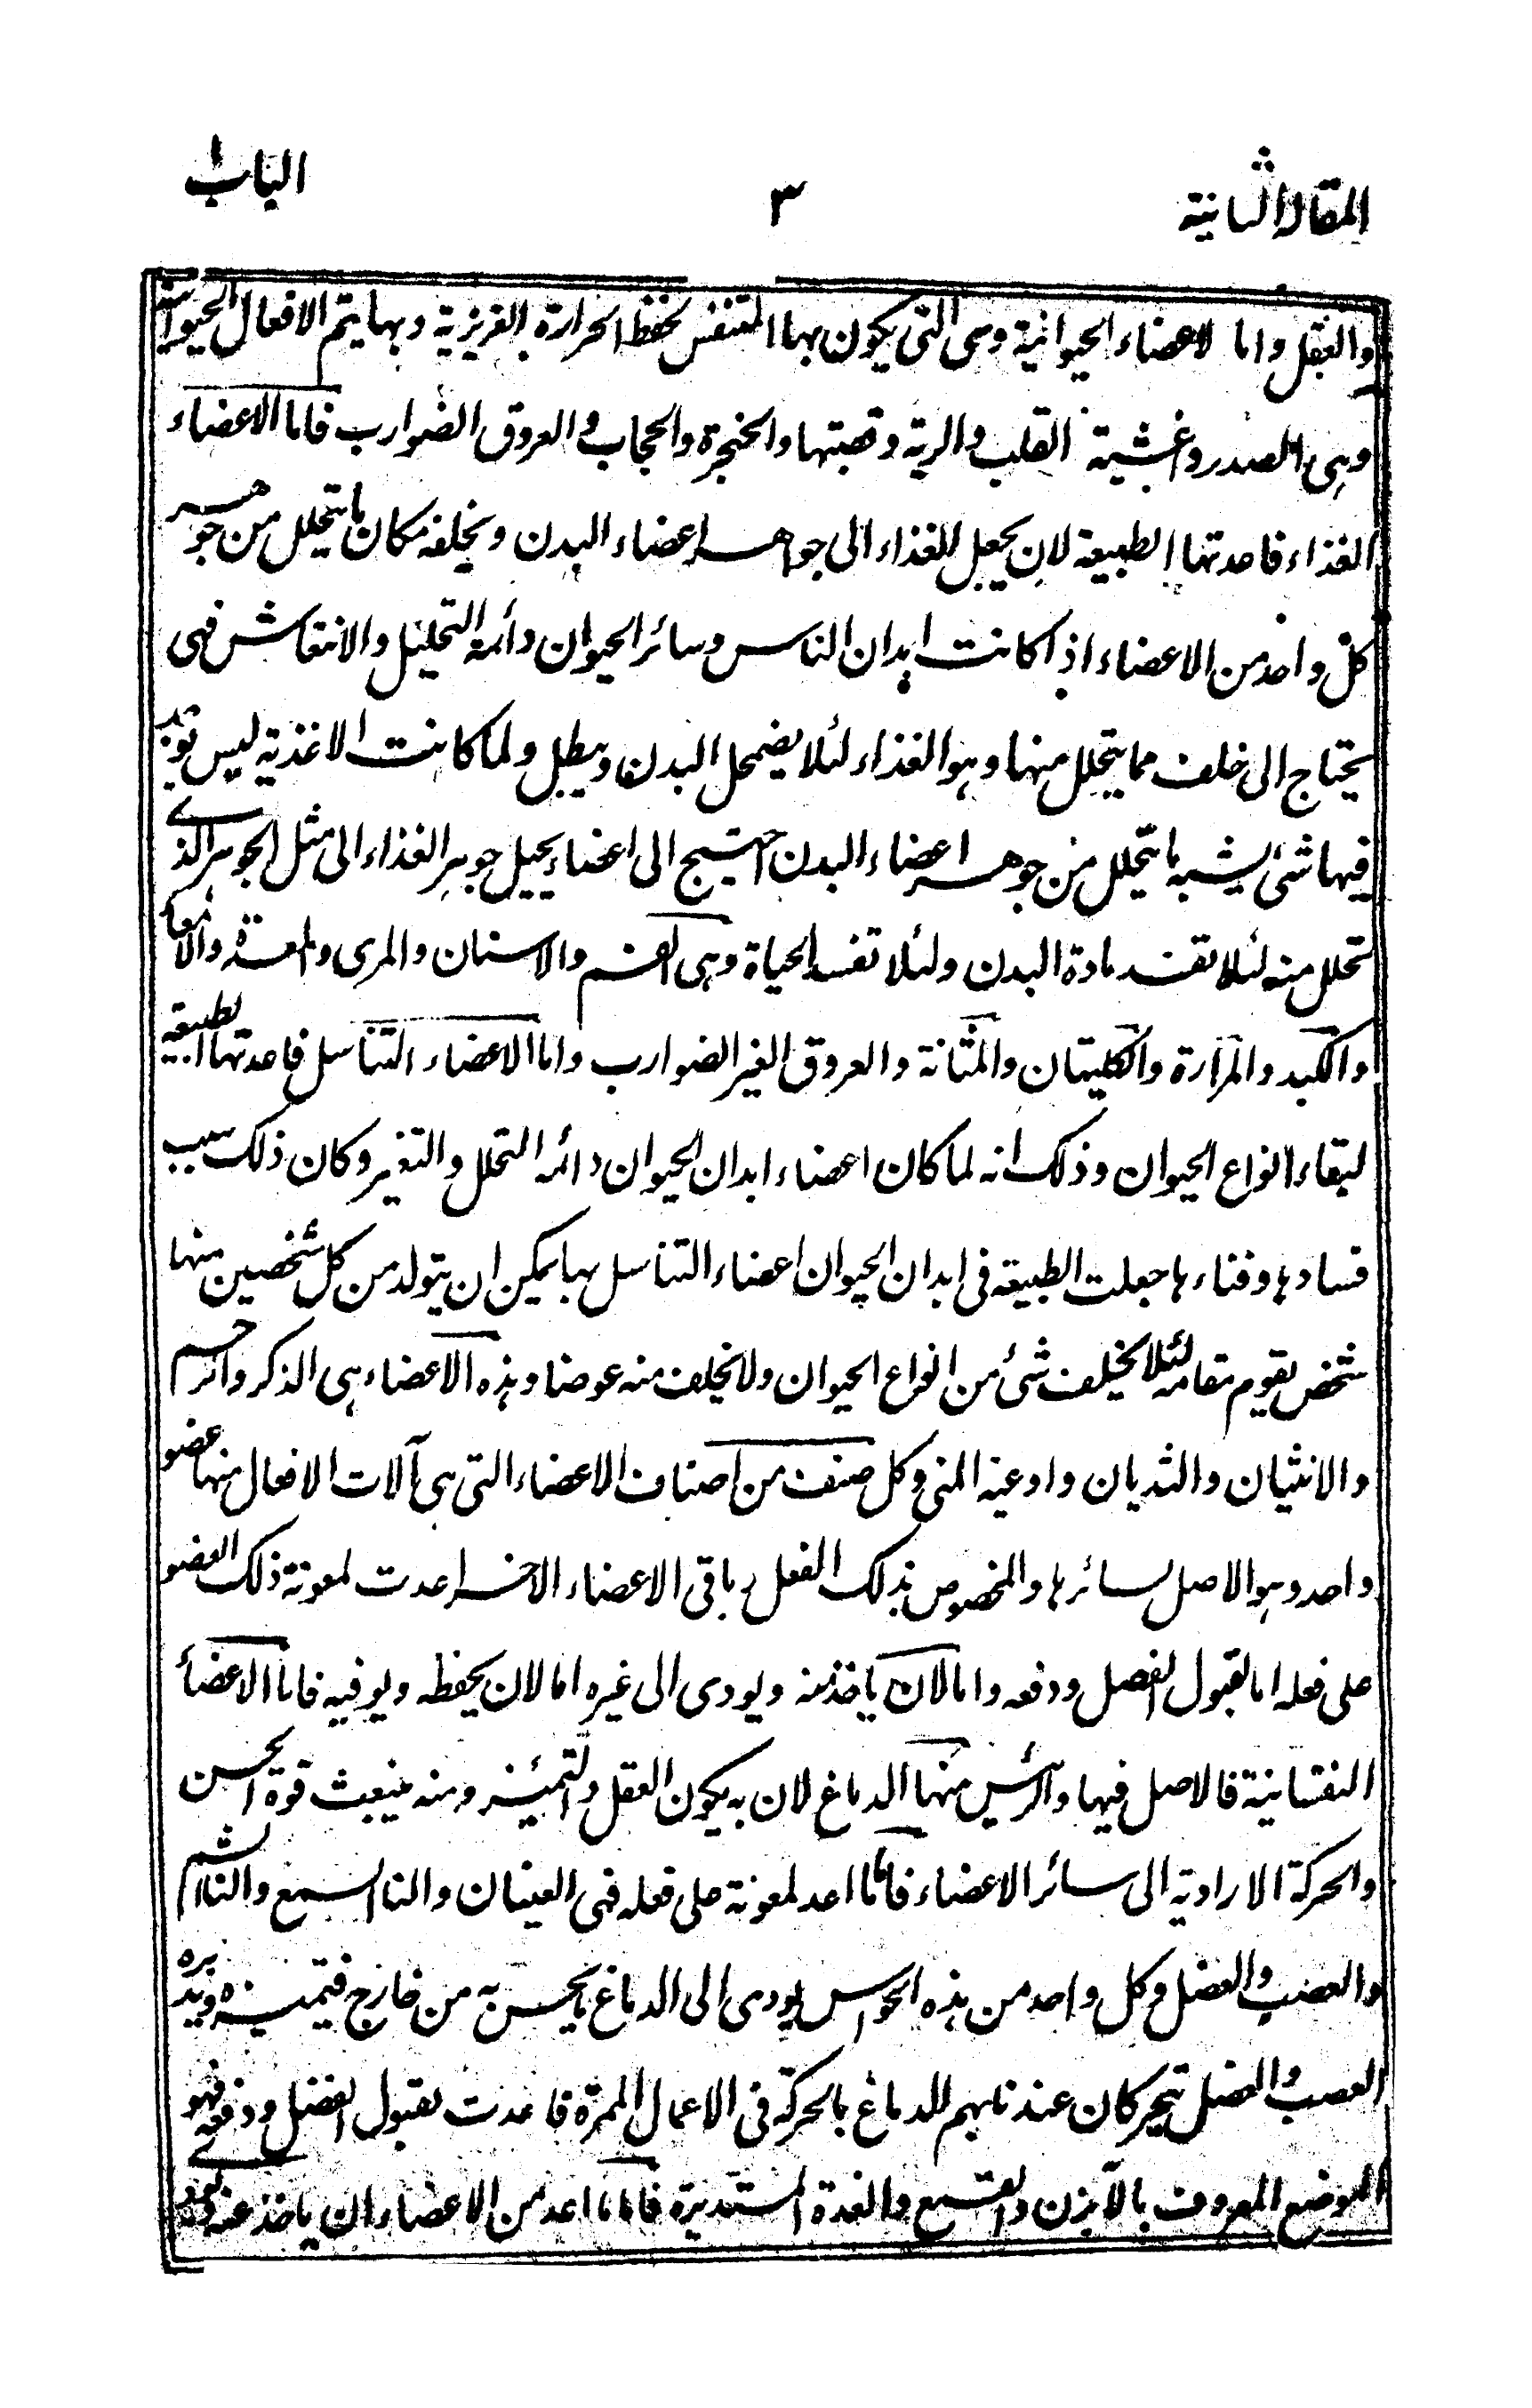 المقالة الثانية ٣ الباب ١
والعقل واما لاعضاء الحيوانية وهى التى يكون بها التنفس بحفظ الحرارة الغريزية وبها يتم الافعال الحيوانية
وهى الصدر واغشية القلب والرية وقصبتها والحنجرة والحجاب والعروق الضوارب فاما الاعضاء
الغذاء فاعدتها الطبيعة لان يحيل الغذاء الى جواهر اعضاء البدن ويخلفه مكان ما يتحلل من جوهر
كل واحد من الاعضاء اذ كانت ابدان الناس وسائر الحيوان دائمة التحليل والانتعاش فهى
يحتاج الى خلف مما يتحلل منها وهو الغذاء لئلا يضمحل البدن ويبطل ولما كانت الاغذية ليس توجد
فيها شئ يشبه ما يتحلل من جوهر اعضاء البدن احتيج الى اعضاء يحيل جوهر الغذاء الى مثل الجوهر الذى
تحلل منه لئلا تفسد مادة البدن ولئلا تفسد الحياة وهى الفم والاسنان والمرى والمعدة والامعاء
والكبد والمرارة والكليتان والمثانة والعروق الغير الضوارب واما الاعضاء التناسل فاعدتها الطبيعة
لبقاء انواع الحيوان وذلك انه لما كان اعضاء ابدان الحيوان دائمه التحلل والتغير وكان ذلك سبب
فسادها وفناءها جعلت الطبيعه فى ابدان الحيوان اعضاء التناسل بها يمكن ان يتولد من كل شخصين منها
شخص يقوم مقامه لئلا يخلف شئ من انواع الحيوان ولا يخلف منه عوضا وهذه الاعضاء هى الذكر والرحم
والانثيان والثديان واوعية المنى وكل صنف من اصناف الاعضاء التى هى آلات الافعال منها عضو
واحد وهو الاصل لسائرها والمخصوص بذلك الفعل وباقى الاعضاء الاخر اعدت لمعونة ذلك العضو
على فعله اما لقبول الفضل ودفعه واما لان ياخذ منه ويودى الى غيره اما لان يحفظه ويوقيه فاما الاعضأ
النفسانية فالاصل فيها والرئيس منها الدماغ لان به يكون العقل والتمييز ومنه ينبعث قوة الحس
والحركة الارادية الى سائر الاعضاء فاما ما اعد لمعونة على فعله فهى العينان والتا السمع والتا الشم
والعصب والعضل وكل واحد من هذه الحواس يودى الى الدماغ ما يحس به من خارج فيتميزه ويدبره
العصب والعضل تتحركان عند الدماغ بالحركة فى الاعمال فاعدت لقبول الفضل ودفعه فهو
الموضع المعروف بالآبزن والقمع والغدة المستديرة فاما ما اعد من الاعضاء ان ياخذ عنه ويودى